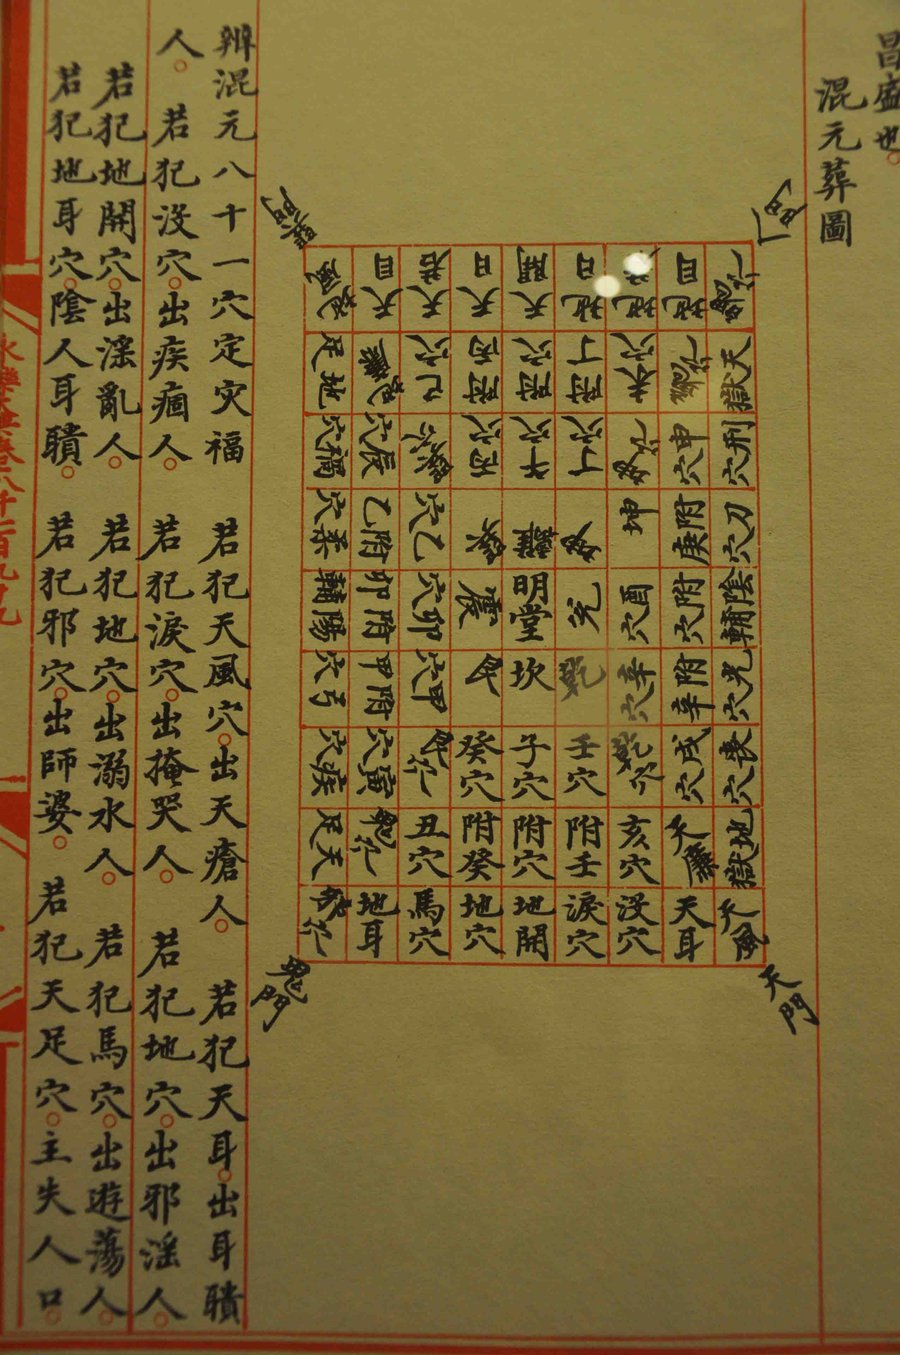 昌盛也。
混元葬圖
天獄
刑穴
刀穴
陰輔
光穴
喪穴
地獄
天風
地目
申穴
附庚
附穴
附辛
戌穴
天廉
天耳
未穴
坤
酉穴
辛穴
乾穴
亥穴
沒穴
地日
附丁
丁穴
兌
乾
壬穴
附壬
淚穴
天開
附穴
午穴
離
明堂
坎
子穴
附穴
地開
天日
附丙
丙穴
巽
震
艮
癸穴
附癸
地穴
天若
巳穴
巽穴
乙穴
卯穴
甲穴
艮穴
丑穴
馬穴
天目
辰穴
乙附
卯附
甲附
寅穴
鬼穴
地耳
地足
禍穴
柔穴
陽輔
弓穴
疾穴
天足
天門
鬼門
辨混元八十一穴定灾福　若犯天風穴。出天瘡人。　若犯天耳。出耳聵
人。　若犯沒穴。出疾痼人。　若犯淚穴。出掩哭人。　若犯地穴。出邪淫人。
若犯地開穴。出淫亂人。　若犯地穴。出溺水人。　若犯馬穴。出遊蕩人。
若犯地耳穴。陰人耳聵。　若犯邪穴。出師婆。　若犯天足穴。主失人口。
永樂大典卷八千一百九十九